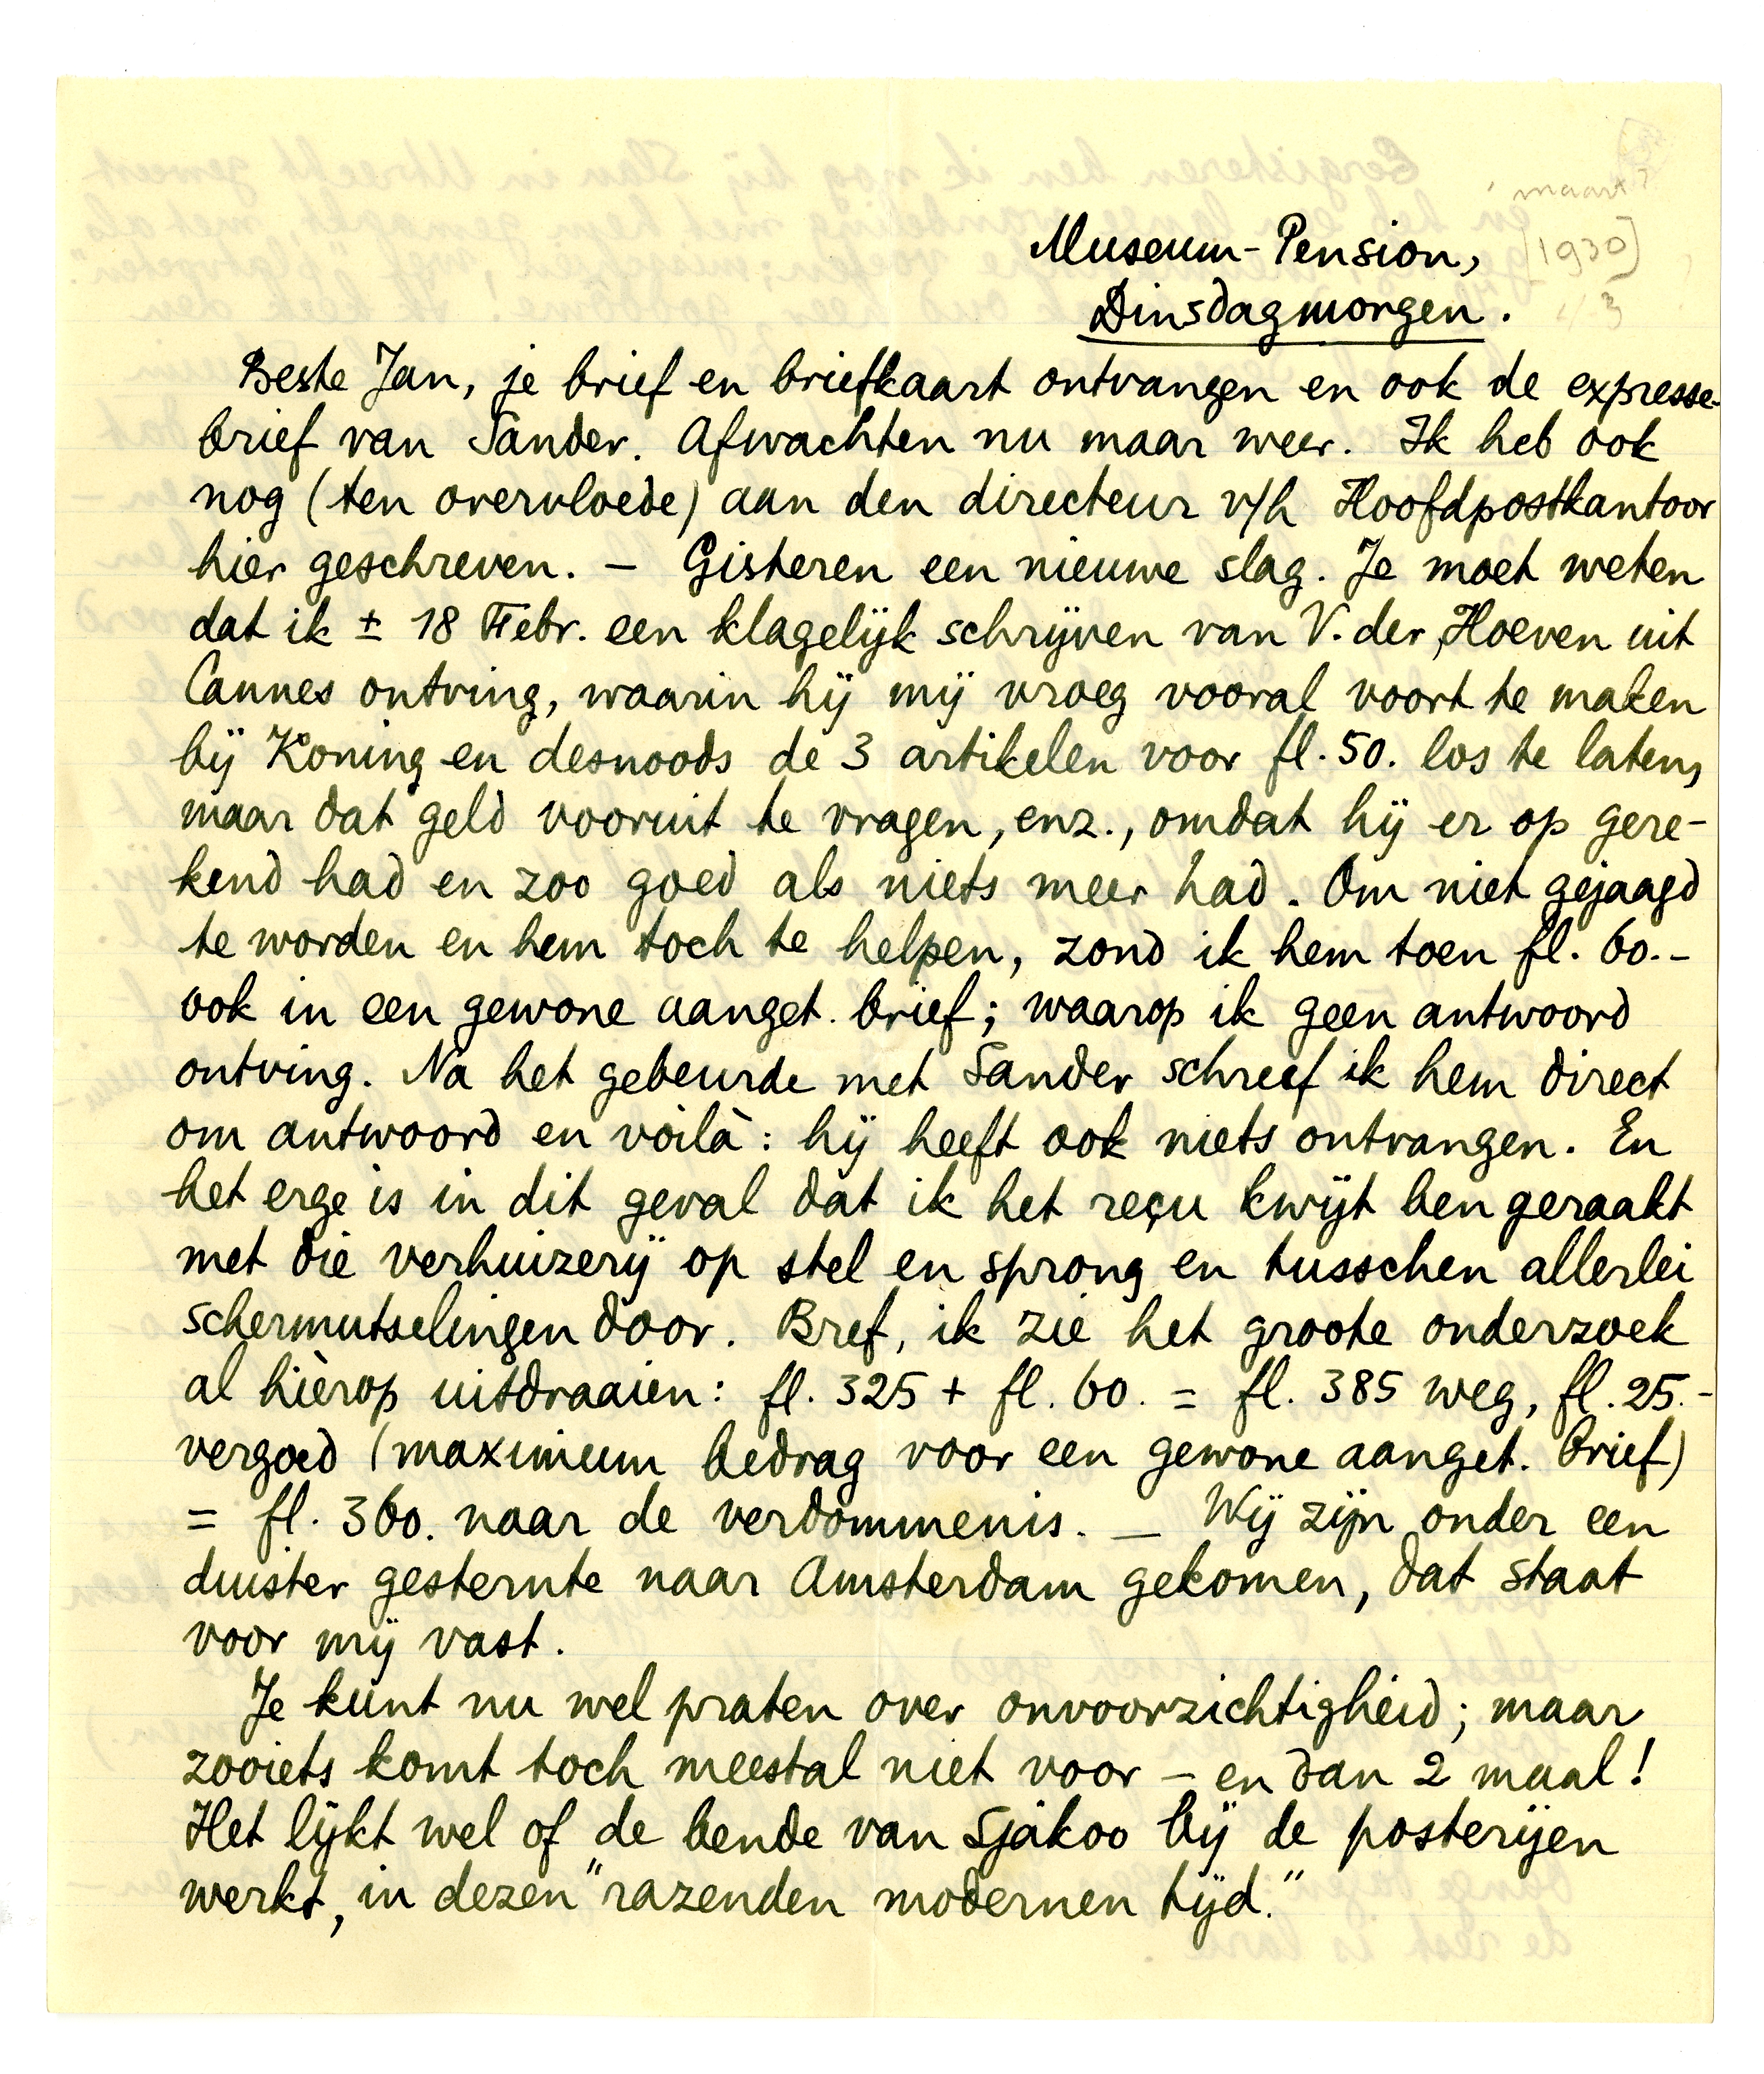 maart?
Museum-Pension,
[1930]
Dinsdagmorgen.
Beste Jan, je brief en briefkaart ontvangen en ook de expresse-
brief van Sander. Afwachten nu maar weer. Ik heb ook
nog (ten overvloede) aan den directeur v/h Hoofdpostkantoor
hier geschreven. – Gisteren een nieuwe slag. Je moet weten
dat ik ± 18 Febr. een klagelijk schrijven van V. der Hoeven uit
Cannes ontving, waarin hij mij vroeg vooral voort te maken
bij Koning en desnoods de 3 artikelen voor fl. 50. los te laten,
maar dat geld vooruit te vragen, enz., omdat hij er op gere-
kend had en zoo goed als niets meer had. Om niet gejaagd
te worden en hem toch te helpen, zond ik hem toen fl. 60.-
ook in een gewone aanget. brief; waarop ik geen antwoord
ontving. Na het gebeurde met Sander schreef ik hem direct
om antwoord en voilà: hij heeft ook niets ontvangen. En
het erge is in dit geval dat ik het reçu kwijt ben geraakt
met die verhuizerij op stel en sprong en tusschen allerlei
schermutselingen door. Bref, ik zie het groote onderzoek
al hièrop uitdraaien: fl. 325 + fl. 60. = fl. 385 weg, fl. 25.-
vergoed (maximum bedrag voor een gewone aanget. brief)
= fl. 360. naar de verdommenis. — Wij zijn onder een
duister gesternte naar Amsterdam gekomen, dat staat
voor mij vast.
Je kunt nu wel praten over onvoorzichtigheid; maar
zooiets komt toch meestal niet voor – en dan 2 maal!
Het lijkt wel of de bende van Sjakoo bij de posterijen
werkt, in dezen "razenden modernen tijd."